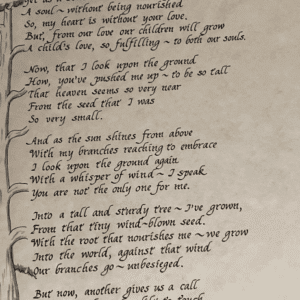 A soul~without being nourished
So, my heart is without your love.
But, from our love our children will grow
A child's love, so fulfilling ~ to both our souls.
Now, that I look upon the ground
How, you've pushed me up ~ to be so tall
That heaven seems so very near
From the seed that I was
So very small.
And as the sun shines from above
With my branches reaching to embrace
I look upon the ground again
With a whisper of wind ~ I speak
You are not the only one for me.
Into a tall and sturdy tree ~ I've grown,
From that tiny wind~blown seed.
With the root that nourishes me ~ we grow
Into the world, against that wind
Our branches go ~ unbesieged.
But now, another gives us a call